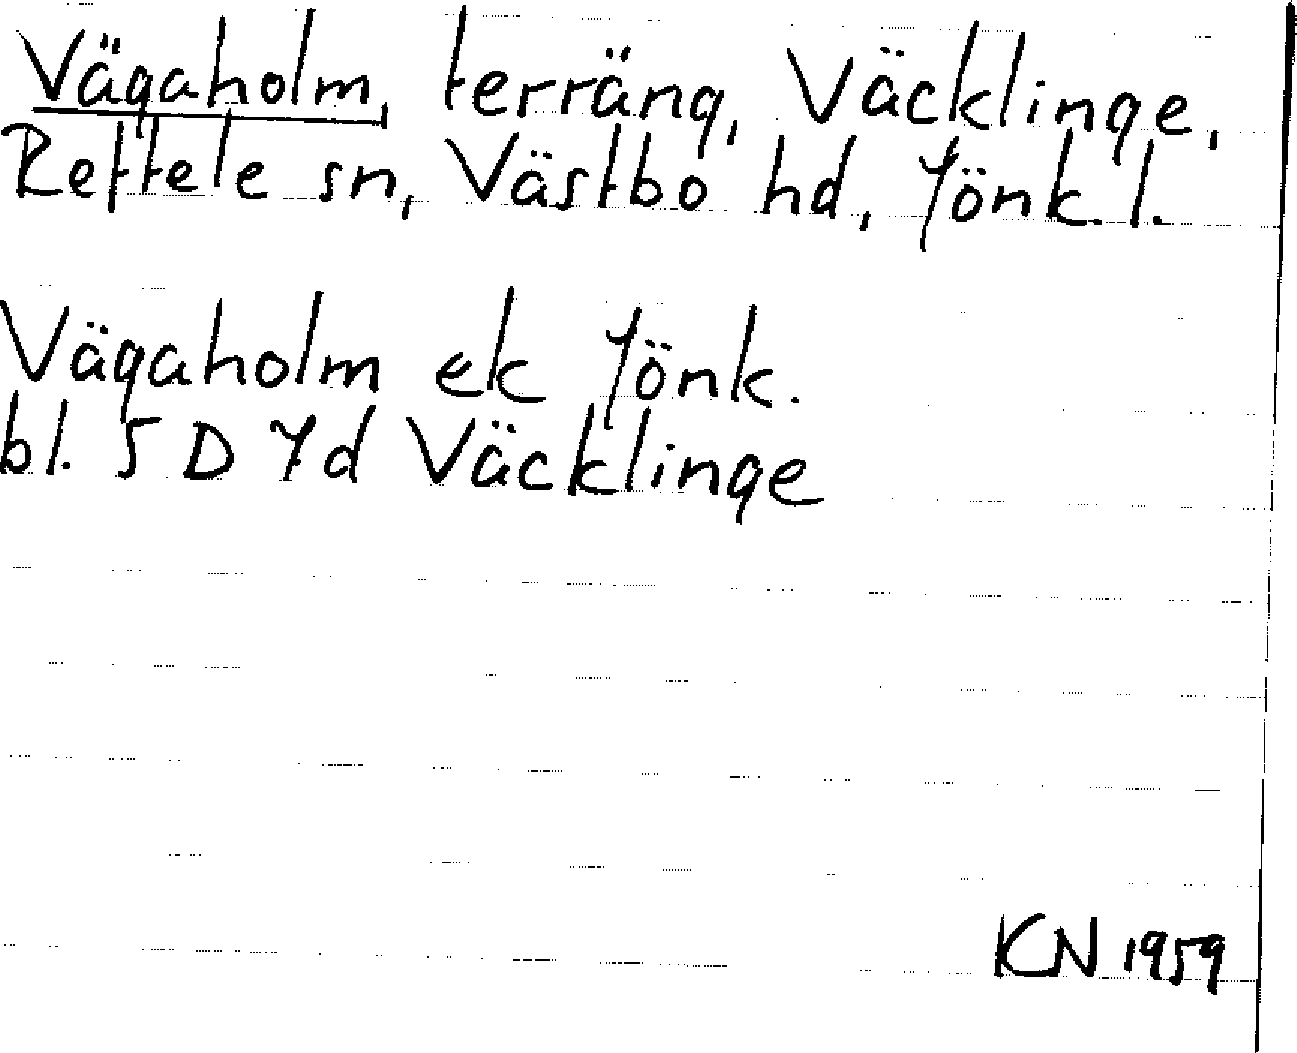 Vägaholm, terräng, Väcklinge,
Reftele sn, Västbo hd, Jönk. l.
Vägaholm ek Jönk.
bl. 5 D 7d Väcklinge
KN 1959